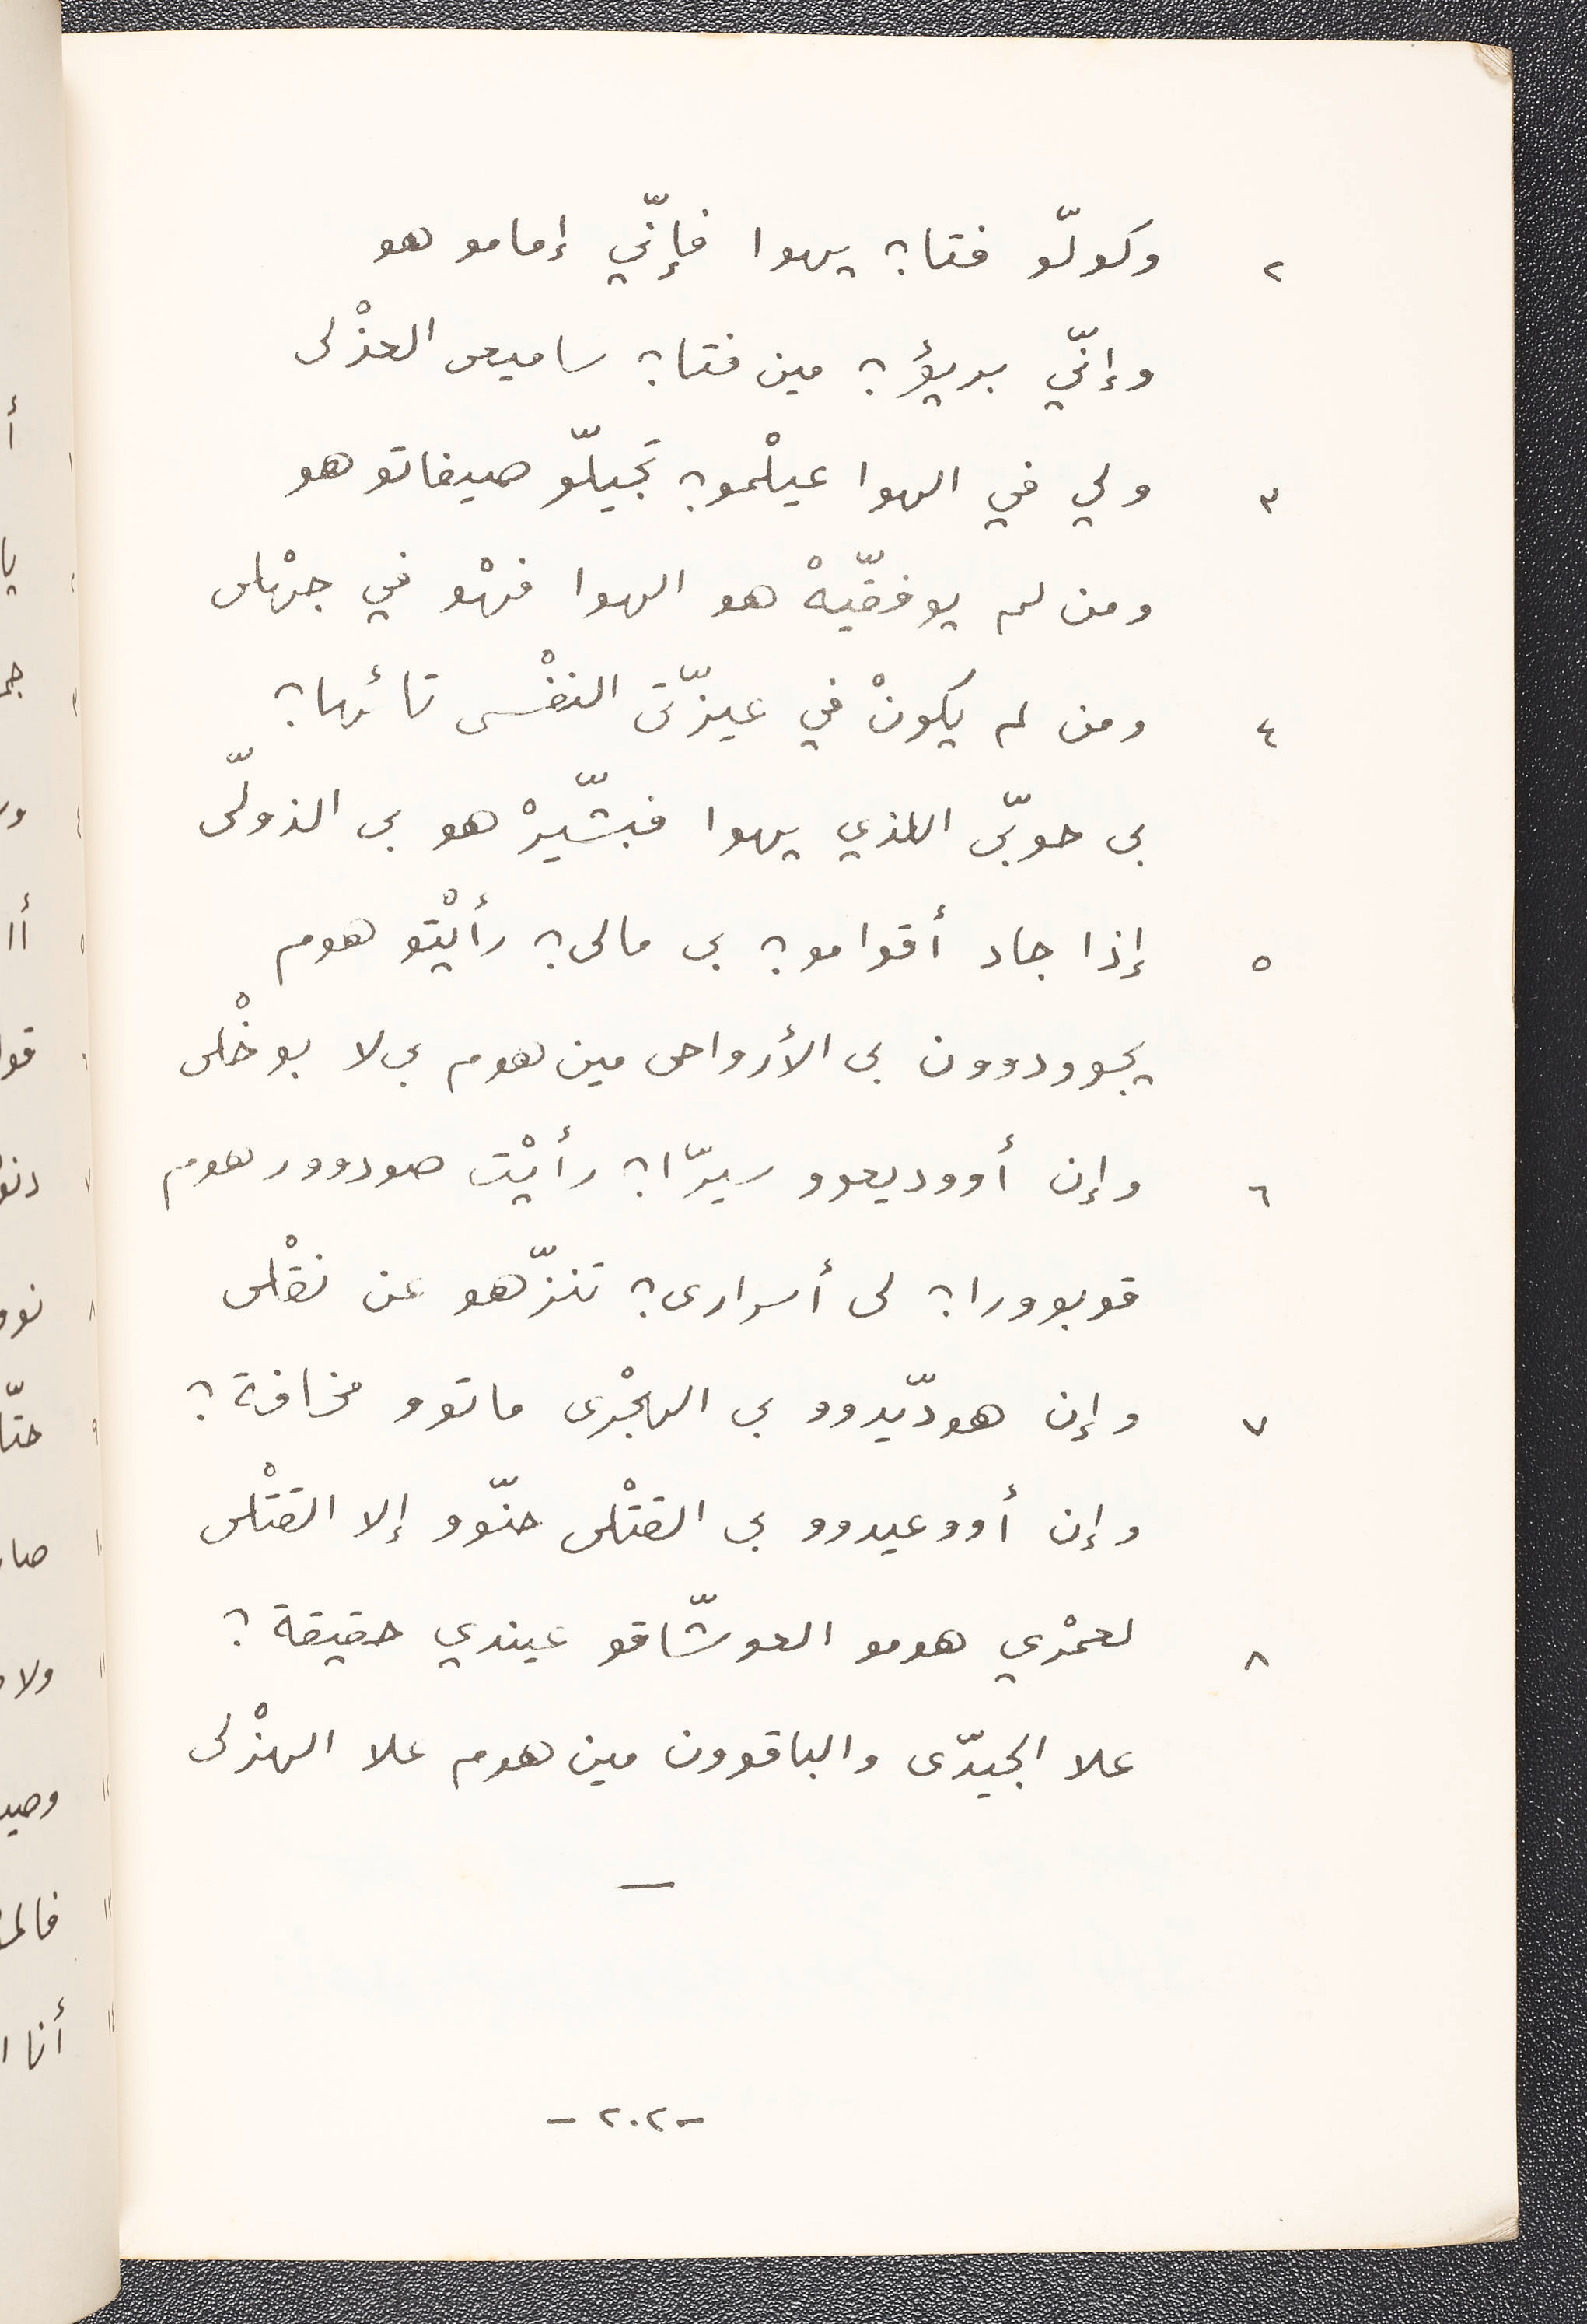 ٢ وكولّو فتا؟ يهوا فإنّي إمامو هو
وإنّي بريؤ؟ مين فتا؟ ساميعى العذْلى
٣ ولي في الهوا عيلْمو؟ تجيلّو صيفاتو هو
ومن لم يوفقّيهْ هو الهوا فهْو في جهْلى
٤ ومن لم يكونْ في عيزّتى النفْسى تائها؟
بى حوبّى اللذي يهوا فبشّيرْ هو بى الذولّى
٥ إذا جاد أقوامو؟ بى مالى؟ رأيْتو هوم
يجوودوون بى الأرواحى مين هوم بى لا بوخْلى
٦ وإن أووديعوو سيرّا؟ رأيْت صودوور هوم
قوبوورا؟ لى أسرارى؟ تنزّهو عن نقْلى
٧ وإن هودّيدوو بى الهجْرى ماتوو مخافة؟
وإن أووعيدوو بى القتْلى حنّوو إلا القتْلى
٨ لعمْري هومو العوشّاقو عيندي حقيقة؟
علا الجيدّى والباقوون مين هوم علا الهزْلى
-٢٠٢-